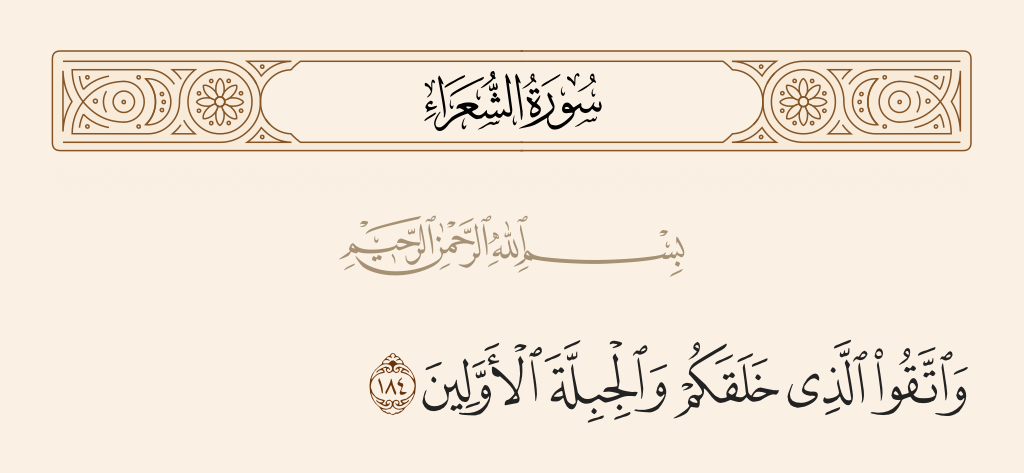 سُورَةُ الشُّعَرَاءِ
بِسْمِ ٱللَّهِ ٱلرَّحْمَٰنِ ٱلرَّحِيمِ
وَٱتَّقُوا۟ ٱلَّذِى خَلَقَكُمْ وَٱلْجِبِلَّةَ ٱلْأَوَّلِينَ ١٨٤